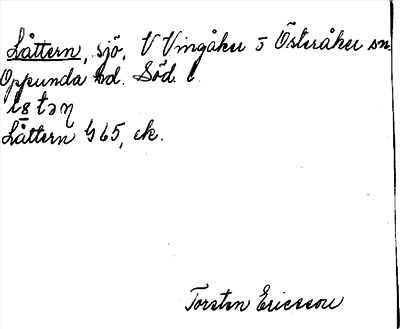 Låttern, sjö, V Vingåker o Österåker sn
Oppunda hd. Söd. l.
Låttern G 65, ek.
Torsten Ericsson